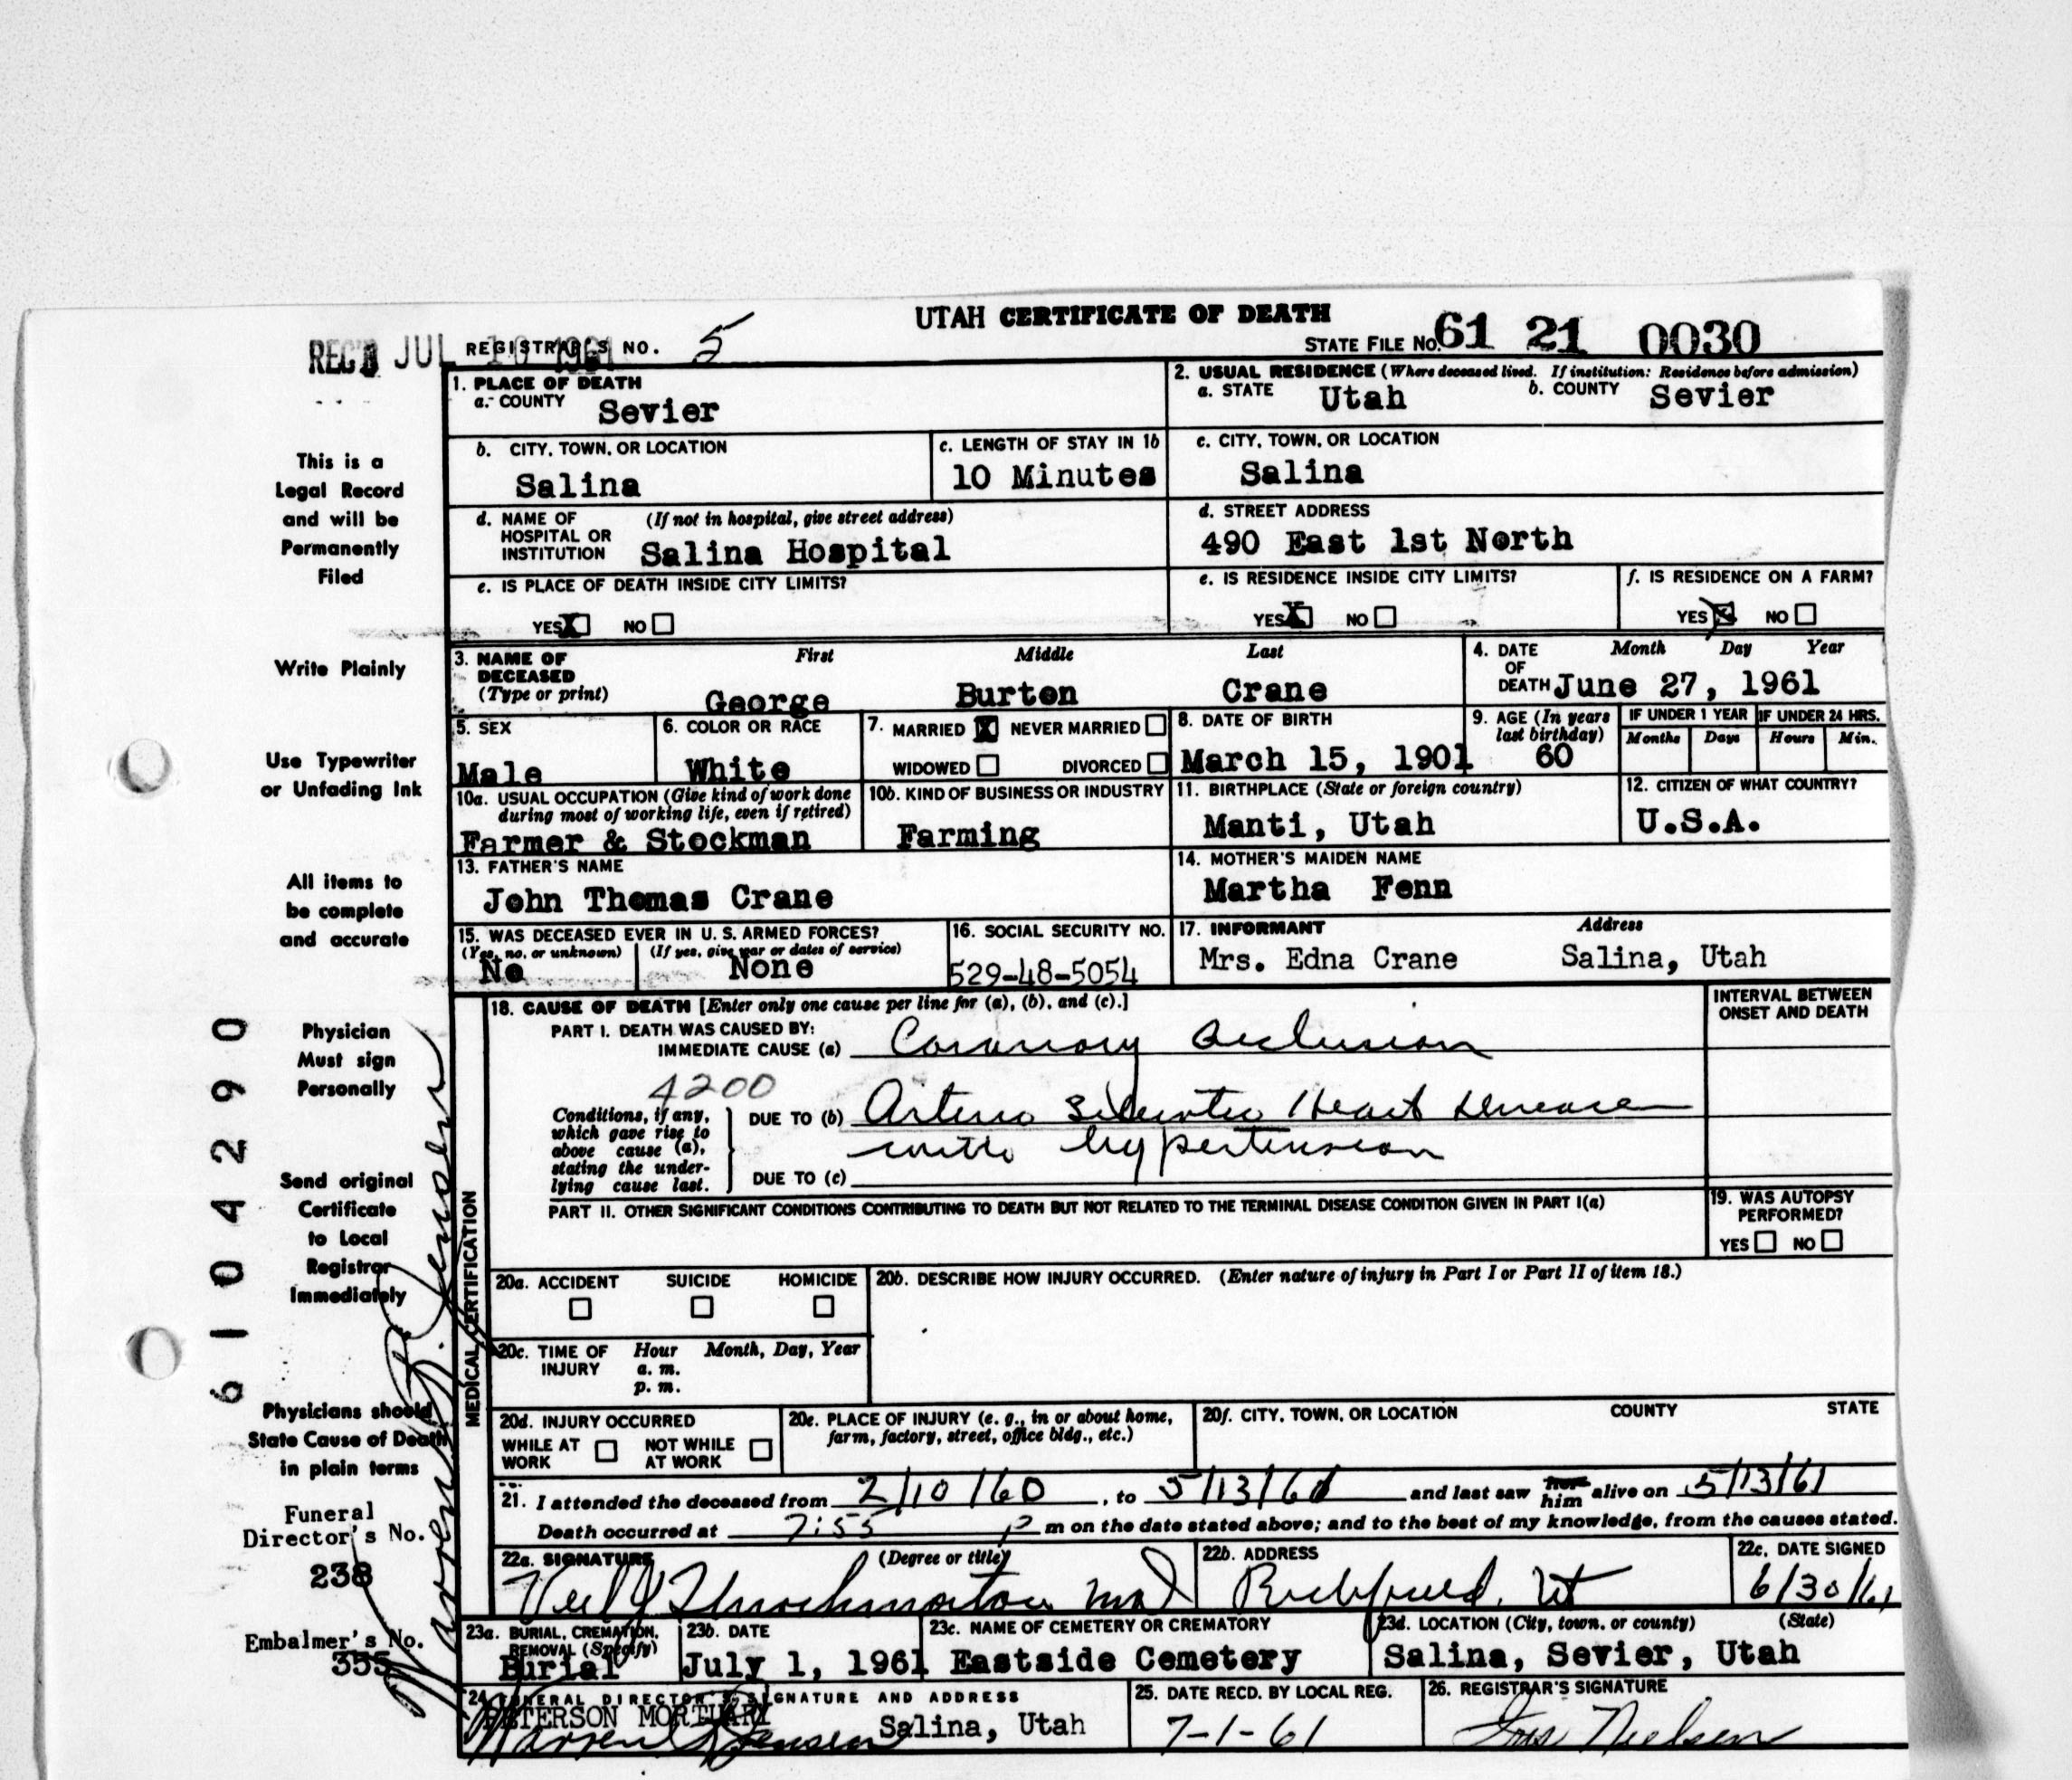 UTAH CERTIFICATE OF DEATH
REC'D JUL 10 1961 REGISTRAR'S NO. 5 STATE FILE NO. 61 21 0030
1. PLACE OF DEATH
a. COUNTY Sevier
2. USUAL RESIDENCE (Where deceased lived. If institution: Residence before admission)
a. STATE Utah b. COUNTY Sevier
b. CITY, TOWN, OR LOCATION
Salina
c. LENGTH OF STAY IN 1b
10 Minutes
c. CITY, TOWN, OR LOCATION
Salina
d. NAME OF HOSPITAL OR INSTITUTION (If not in hospital, give street address)
Salina Hospital
d. STREET ADDRESS
490 East 1st North
e. IS PLACE OF DEATH INSIDE CITY LIMITS?
YES X NO
e. IS RESIDENCE INSIDE CITY LIMITS?
YES X NO
f. IS RESIDENCE ON A FARM?
YES X NO
3. NAME OF DECEASED (Type or print)
First Middle Last
George Burton Crane
4. DATE OF DEATH Month Day Year
June 27, 1961
5. SEX
Male
6. COLOR OR RACE
White
7. MARRIED X NEVER MARRIED
WIDOWED DIVORCED
8. DATE OF BIRTH
March 15, 1901
9. AGE (In years last birthday)
60
IF UNDER 1 YEAR IF UNDER 24 HRS.
Months Days Hours Min.
10a. USUAL OCCUPATION (Give kind of work done during most of working life, even if retired)
Farmer & Stockman
10b. KIND OF BUSINESS OR INDUSTRY
Farming
11. BIRTHPLACE (State or foreign country)
Manti, Utah
12. CITIZEN OF WHAT COUNTRY?
U.S.A.
13. FATHER'S NAME
John Thomas Crane
14. MOTHER'S MAIDEN NAME
Martha Fenn
15. WAS DECEASED EVER IN U. S. ARMED FORCES?
(Yes, no, or unknown) (If yes, give war or dates of service)
No None
16. SOCIAL SECURITY NO.
529-48-5054
17. INFORMANT Address
Mrs. Edna Crane Salina, Utah
MEDICAL CERTIFICATION
18. CAUSE OF DEATH [Enter only one cause per line for (a), (b), and (c).]
INTERVAL BETWEEN ONSET AND DEATH
PART I. DEATH WAS CAUSED BY:
IMMEDIATE CAUSE (a) Coronary occlusion
4200
Conditions, if any, which gave rise to above cause (a), stating the underlying cause last.
DUE TO (b) Arterio Sclerotic Heart Disease
with hypertension
DUE TO (c)
PART II. OTHER SIGNIFICANT CONDITIONS CONTRIBUTING TO DEATH BUT NOT RELATED TO THE TERMINAL DISEASE CONDITION GIVEN IN PART I(a)
19. WAS AUTOPSY PERFORMED?
YES NO
20a. ACCIDENT SUICIDE HOMICIDE
20b. DESCRIBE HOW INJURY OCCURRED. (Enter nature of injury in Part I or Part II of item 18.)
20c. TIME OF INJURY Hour a. m. p. m. Month, Day, Year
20d. INJURY OCCURRED
WHILE AT WORK NOT WHILE AT WORK
20e. PLACE OF INJURY (e. g., in or about home, farm, factory, street, office bldg., etc.)
20f. CITY, TOWN, OR LOCATION COUNTY STATE
21. I attended the deceased from 2/10/60, to 5/13/61 and last saw her him alive on 5/13/61
Death occurred at 7:55 p m on the date stated above; and to the best of my knowledge, from the causes stated.
22a. SIGNATURE (Degree or title)
Throckmorton MD
22b. ADDRESS
Richfield, Ut
22c. DATE SIGNED
6/30/61
23a. BURIAL, CREMATION, REMOVAL (Specify)
Burial
23b. DATE
July 1, 1961
23c. NAME OF CEMETERY OR CREMATORY
Eastside Cemetery
23d. LOCATION (City, town, or county) (State)
Salina, Sevier, Utah
24. FUNERAL DIRECTOR'S SIGNATURE AND ADDRESS
PETERSON MORTUARY
Warren Jensen
Salina, Utah
25. DATE RECD. BY LOCAL REG.
7-1-61
26. REGISTRAR'S SIGNATURE
Nielsen
This is a
Legal Record
and will be
Permanently
Filed
Write Plainly
Use Typewriter
or Unfading Ink
All items to
be complete
and accurate
Physician
Must sign
Personally
Send original
Certificate
to Local
Registrar
Immediately
Physicians should
State Cause of Death
in plain terms
Funeral
Director's No.
238
Embalmer's No.
355
Warren Jensen
6104290